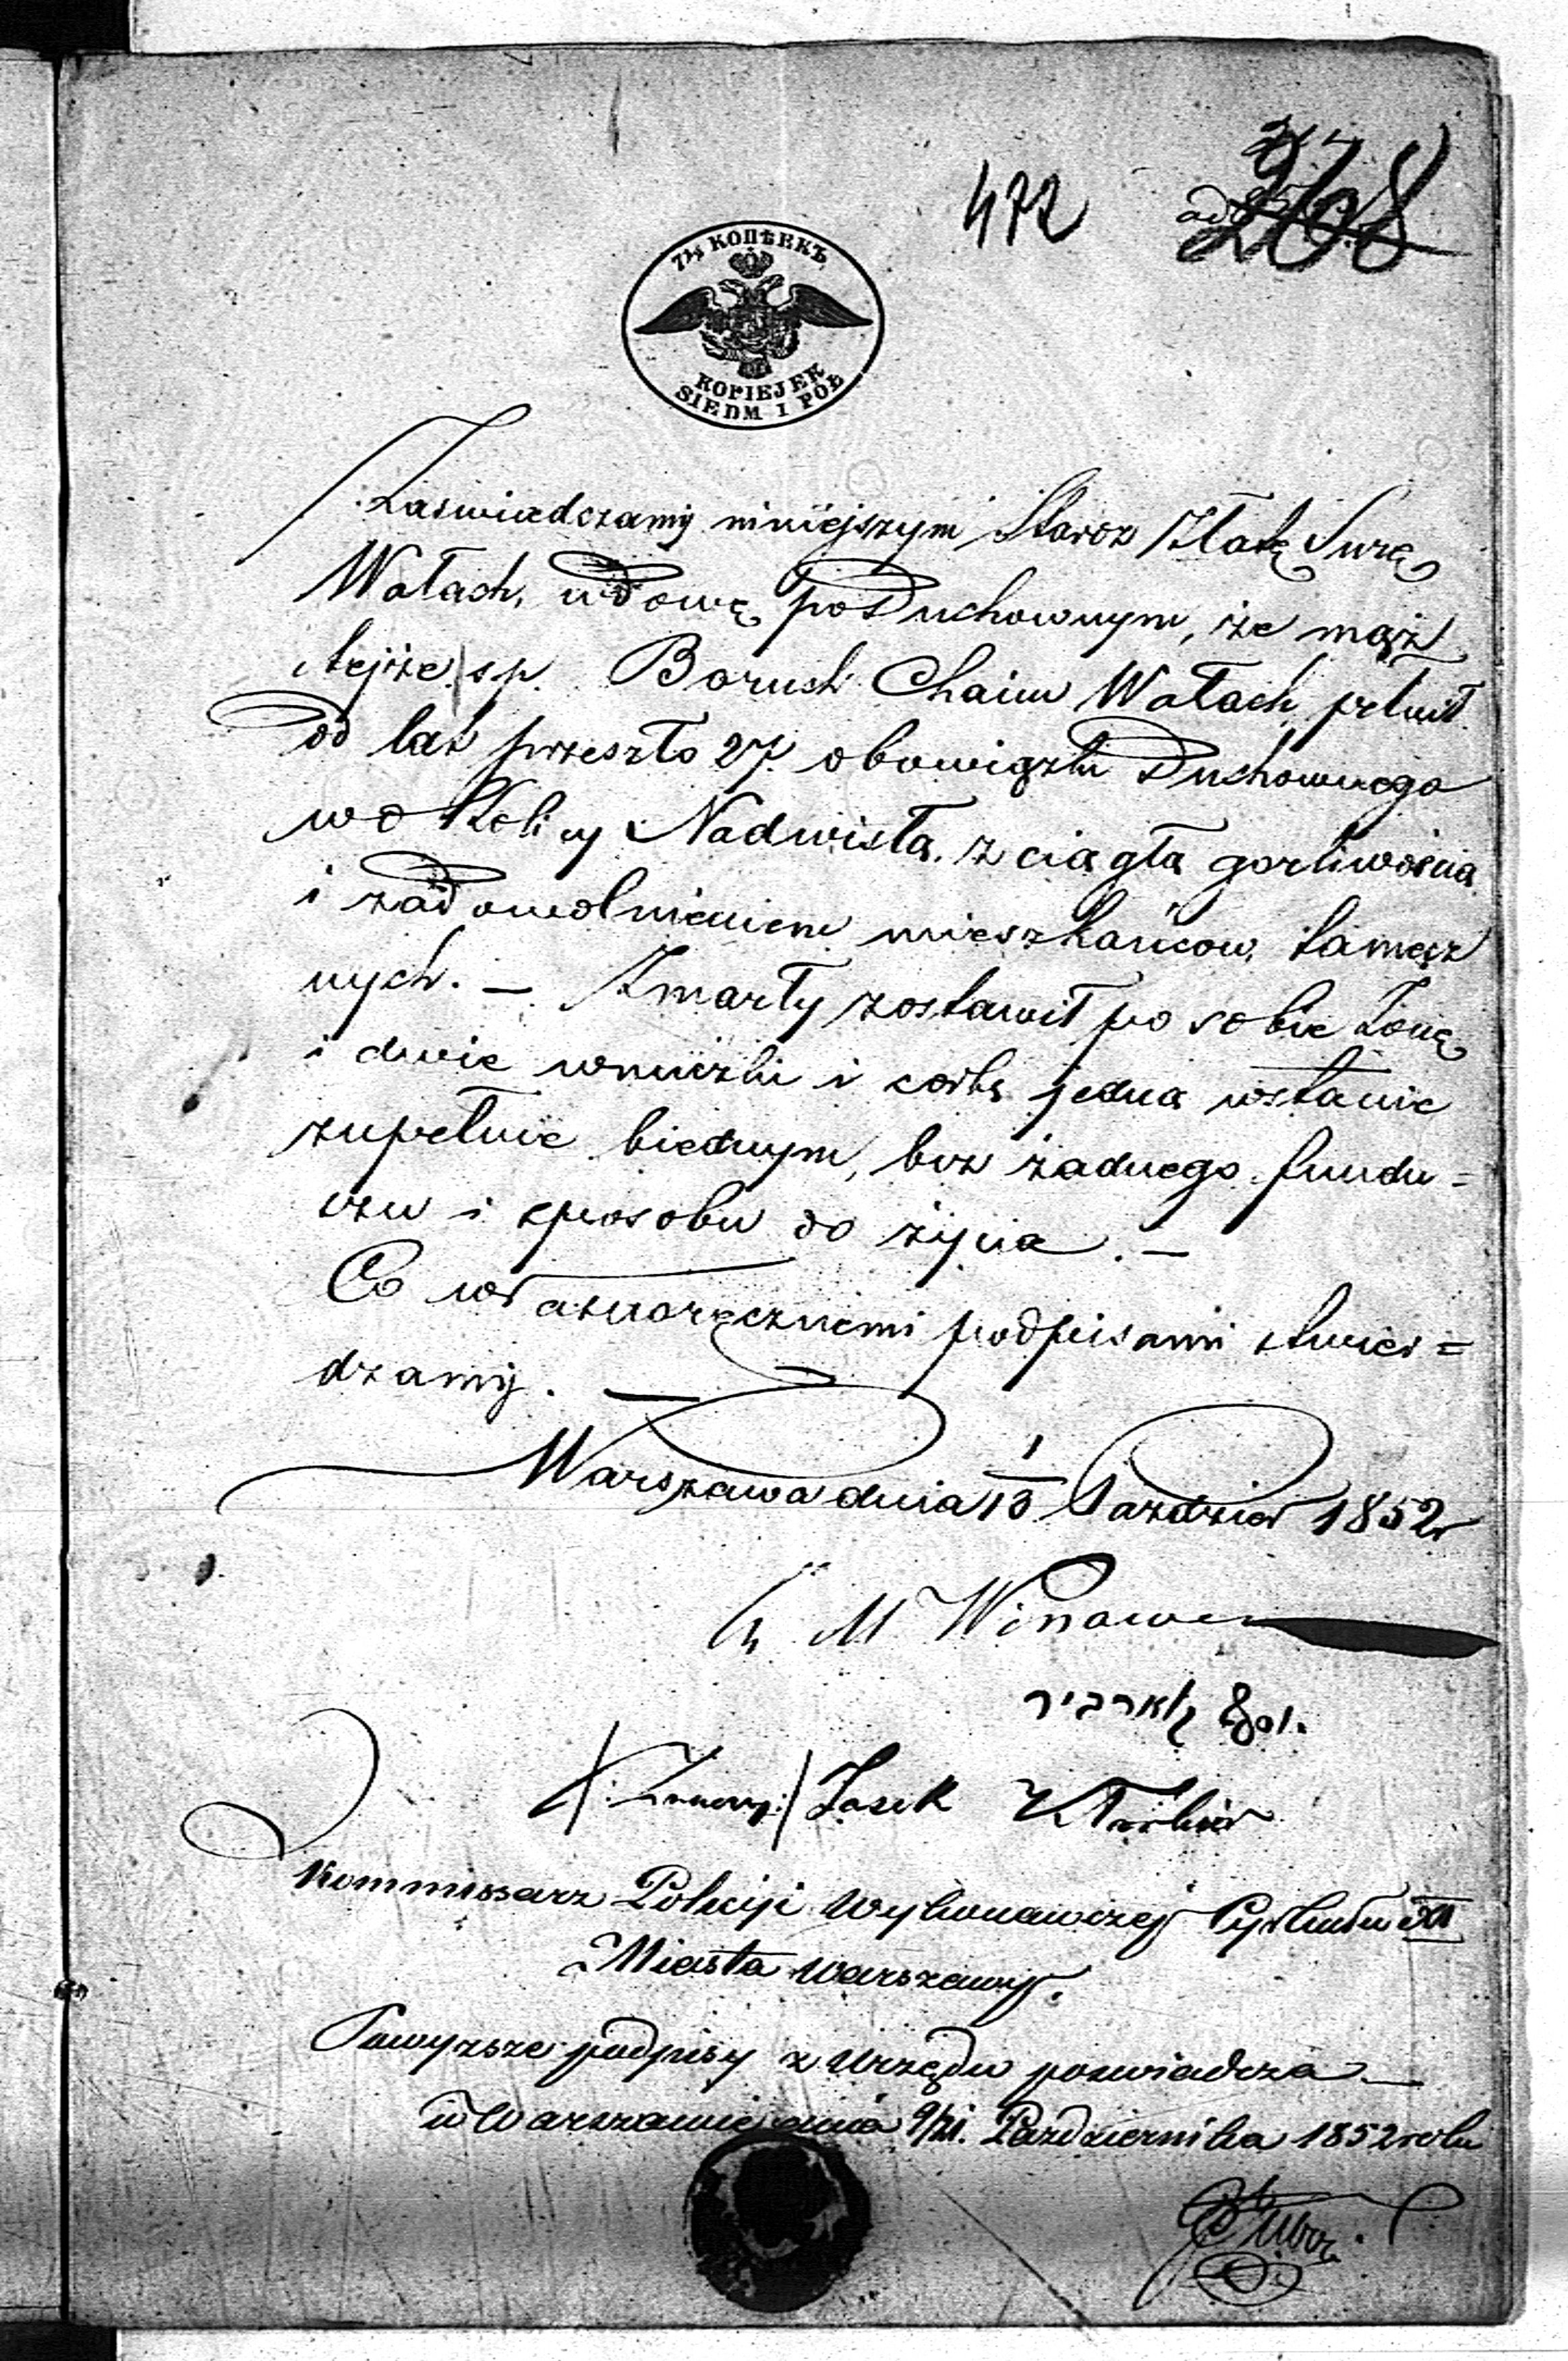 472
268
7½ КОПѢЕКЪ
KOPIEJEK
SIEDM I PÓŁ
Zaswiadczamy niniejszym Staroz Złatę Surę
Wałach, wdowę po Duchownym, że mąż
tejże sp. Boruch Chaim Wałach pełnił
od lat przeszło 27. obowiązki Duchownego
w okolicy Nadwisłą, z ciągłą gorliwoscią
i zadowolnieniem mieszkańcow tamecz
nych. — Zmarły zostawił po sobie Żonę
i dwie wnuczki i corkę jedną wstanie
zupełnie biednym, bez żadnego fundu=
szu i sposobu do życia. —
Co własnoręcznemi podpisami stwier=
dzamy. —
Warszawa dnia 1/13 Pazdzier 1852r
M Winawer
Josek
Kommissarz Policyi Wykonawczej Cyrkułu
Miasta Warszawy.
Powyzsze podpisy z Urzędu poswiadcza —
w Warszawie dnia 9/21. Pazdziernika 1852 roku